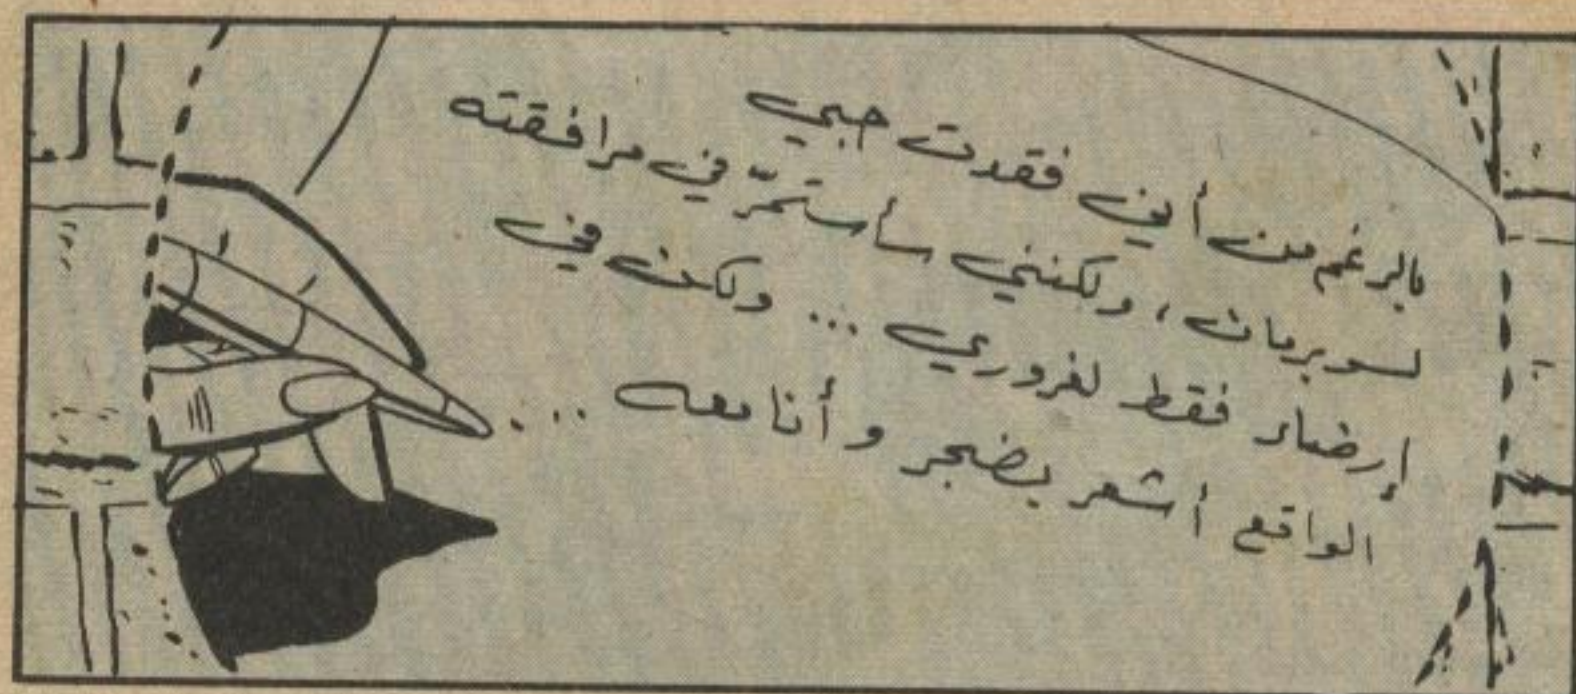 بالرغم من أني فقدت حبي
لسوبرمان، ولكنني سأستمرّ في مرافقته
إرضاء فقط لغروري ... ولكن في
الواقع أشعر بضجر وأنا معه ...